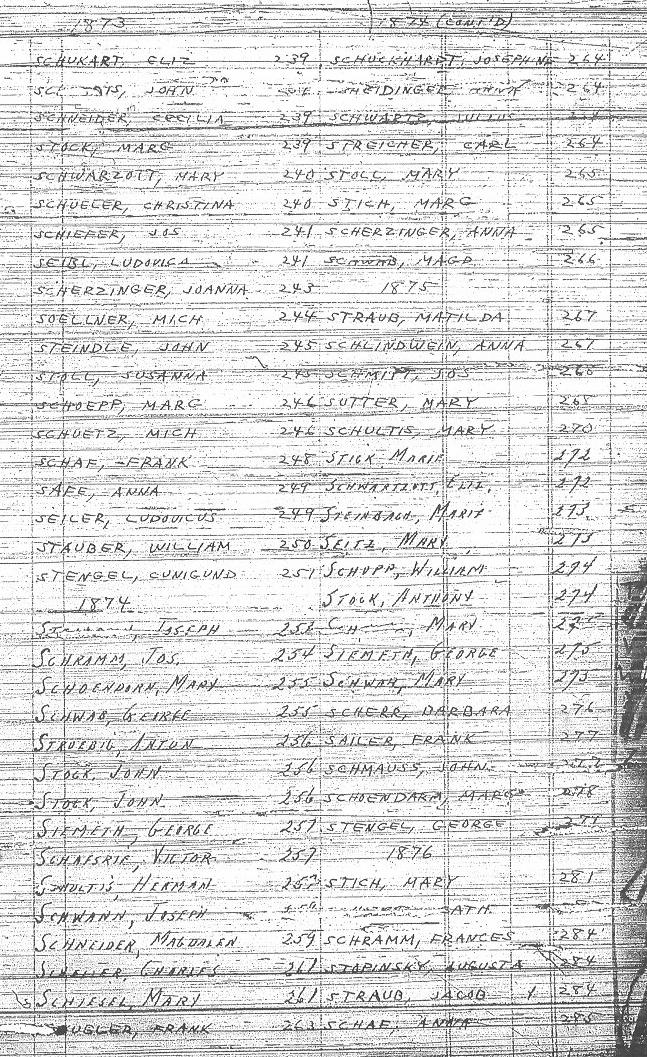 1873
SCHUKART, ELIZ 239
JOHN
SCHNEIDER, CECILIA 239
STOCK, MARG 239
SCHWARZOTT, MARY 240
SCHUELER, CHRISTINA 240
SCHIEFER, JOS 241
SEIBL, LUDOVICA 241
SCHERZINGER, JOANNA 243
SOELLNER, MICH 244
STEINDLE, JOHN 245
STOLL, SUSANNA 245
SCHOEPP, MARG 246
SCHUETZ, MICH 246
SCHAF, FRANK 248
SAFE, ANNA 249
SEILER, LUDOVICUS 249
STAUBER, WILLIAM 250
STENGEL, CUNIGUND 251
1874
JOSEPH
SCHRAMM, JOS. 254
SCHOENDORN, MARY 255
SCHWAB, GEORGE 255
STRUEBIG, ANTON 256
STOCK, JOHN 256
STOCK, JOHN 256
SIEMETH, GEORGE 257
VICTOR 257
SCHULTIS, HERMAN
SCHWANN, JOSEPH
SCHNEIDER, MAGDALEN 259
CHARLES 261
SCHIESEL, MARY 261
FRANK 263
1874 (CONT'D)
SCHUCKHARDT, JOSEPHINE 264
264
SCHWARTZ,
STREICHER, CARL 264
STOLL, MARY 265
STICH, MARG 265
SCHERZINGER, ANNA 265
SCHWAB, MAGD 266
1875
STRAUB, MATILDA 267
SCHLINDWEIN, ANNA 267
SCHMITT, JOS 268
SUTTER, MARY 268
SCHULTIS, MARY 270
STICK MARIE 272
SCHWARTZOTT, ELIZ. 272
STEINBACH, MARIE 273
SEITZ, MARY 273
SCHUPP, WILLIAM 274
STOCK, ANTHONY 274
MARY
SIEMETH, GEORGE 275
SCHWAB, MARY 275
SCHERR, BARBARA 276
SAILER, FRANK 277
SCHMAUSS, JOHN
SCHOENDARM, MARG 278
STENGEL, GEORGE
1876
STICH, MARY 281
CATH.
SCHRAMM, FRANCES 284
STOPINSKY, AUGUSTA 284
STRAUB, JACOB 284
SCHAF, ANNA 285